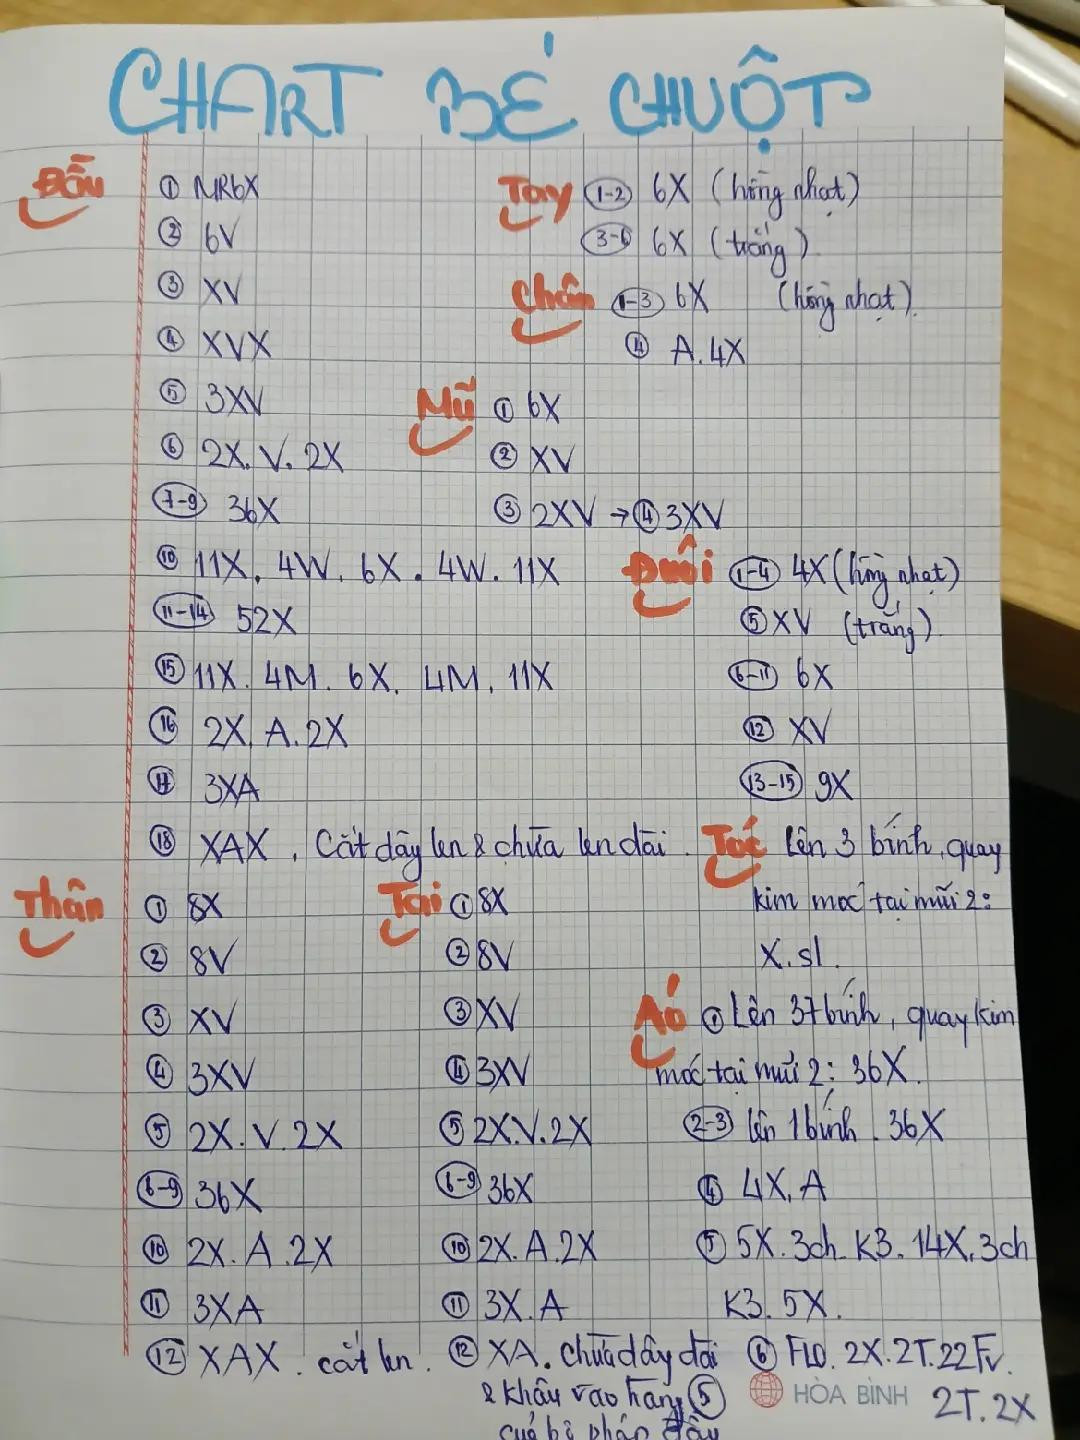 CHART BÉ CHUỘT
Đầu
① MR6X
② 6V
③ XV
④ XVX
⑤ 3XV
⑥ 2X. V. 2X
7-9 36X
⑩ 11X. 4W. 6X. 4W. 11X
11-14 52X
⑮ 11X. 4M. 6X. 4M. 11X
⑯ 2X. A. 2X
⑰ 3XA
⑱ XAX, Cắt dây len & chừa len dài.
Tay 1-2 6X (hồng nhạt)
3-6 6X (trắng)
Chân 1-3 6X (hồng nhạt)
④ A. 4X
Mũ ① 6X
② XV
③ 2XV → ④ 3XV
Đuôi 1-4 4X (hồng nhạt)
⑤ XV (trắng)
6-11 6X
⑫ XV
13-15 9X
Tóc Lên 3 bính, quay
kim móc tại mũi 2:
X. sl.
Thân
① 8X
② 8V
③ XV
④ 3XV
⑤ 2X. V. 2X
6-9 36X
⑩ 2X. A. 2X
⑪ 3XA
⑫ XAX. cắt len.
Tai ① 8X
② 8V
③ XV
④ 3XV
⑤ 2X. V. 2X
6-9 36X
⑩ 2X. A. 2X
⑪ 3X. A
⑫ XA. chừa dây dài
& khâu vào hàng ⑤
của bộ phận đầu
Áo ① Lên 37 bính, quay kim
móc tại mũi 2: 36X.
2-3 lên 1 bính. 36X
④ 4X, A
⑤ 5X. 3ch. K3. 14X, 3ch
K3. 5X.
⑥ FLO. 2X. 2T. 22Fv.
2T. 2X
HÒA BÌNH